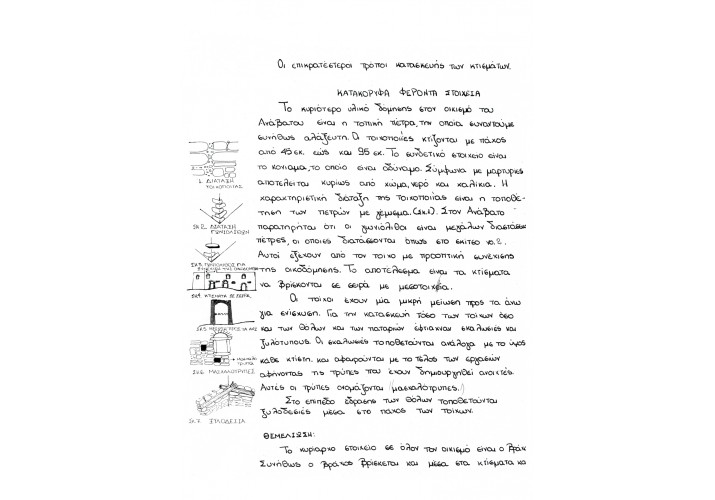 Οι επικρατέστεροι τρόποι κατασκευής των κτισμάτων.
ΚΑΤΑΚΟΡΥΦΑ ΦΕΡΟΝΤΑ ΣΤΟΙΧΕΙΑ
Το κυριότερο υλικό δόμησης στον οικισμό του
Ανάβατου είναι η τοπική πέτρα, την οποία συναντούμε
συνήθως αλάξευτη. Οι τοιχοποιίες κτίζονται με πάχος
από 45 εκ. εώς και 95 εκ. Το συνδετικό στοιχείο είναι
το κονίαμα, το οποίο είναι αδύναμο. Σύμφωνα με μαρτυρίες
αποτελείται κυρίως από χώμα, νερό και χαλίκια. Η
χαρακτηριστική διάταξη της τοιχοποιίας είναι η τοποθέ-
τηση των πετρών με γέμισμα. (Σκ.1). Στον Ανάβατο
παρατηρήται ότι οι γωνιόλιθοι είναι μεγάλων διαστάσεων
πέτρες, οι οποίες διατάσσονται όπως στο σκίτσο νο.2.
Αυτοί εξέχουν από τον τοίχο με προοπτική συνέχισης
της οικοδόμησης. Το αποτέλεσμα είναι τα κτίσματα
να βρίσκονται σε σειρά με μεσοτοιχία.
Οι τοίχοι έχουν μία μικρή μείωση προς τα άνω
για ενίσχυση. Για την κατασκευή τόσο των τοίχων όσο
και των θόλων και των παταριών έφτιαχναν σκαλωσιές και
ξυλότυπους. Οι σκαλωσιές τοποθετούνται ανάλογα με το ύψος
κάθε κτίστη, και αφαιρούνται με το τέλος των εργασιών
αφήνοντας τις τρύπες που έχουν δημιουργηθεί ανοικτές.
Αυτές οι τρύπες ονομάζονται (μασχαλότρυπες.)
Στο επίπεδο έδρασης των θόλων τοποθετούνται
ξυλοδεσιές μέσα στο πάχος των τοίχων.
ΘΕΜΕΛΙΩΣΗ:
Το κυρίαρχο στοιχείο σε όλον τον οικισμό είναι ο Βράχ
Συνήθως ο βράχος βρίσκεται και μέσα στα κτίσματα κα
1. ΔΙΑΤΑΞΗ
ΤΟΙΧΟΠΟΙΙΑΣ
ΣΚ.2. ΔΙΑΤΑΞΗ
ΓΩΝΙΟΛΙΘΩΝ
ΣΚ3. ΓΩΝΙΟΛΙΘΟΣ ΓΙΑ
ΣΚ4. ΚΤΙΣΜΑΤΑ ΣΕ ΣΕΙΡΑ
ΣΚ5. ΜΕΙΩΣΗ ΠΡΟΣ ΤΑ ΑΝΩ
ΣΚ.6. ΜΑΣΧΑΛΟΤΡΥΠΕΣ
ΣΚ.7. ΞΥΛΟΔΕΣΙΑ